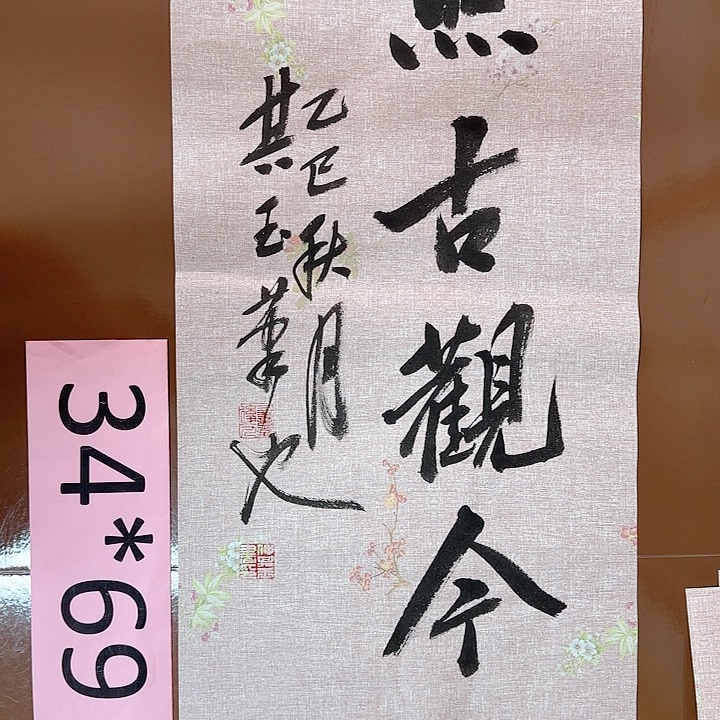 古觀今
乙巳秋月
其玉筆也
34*69